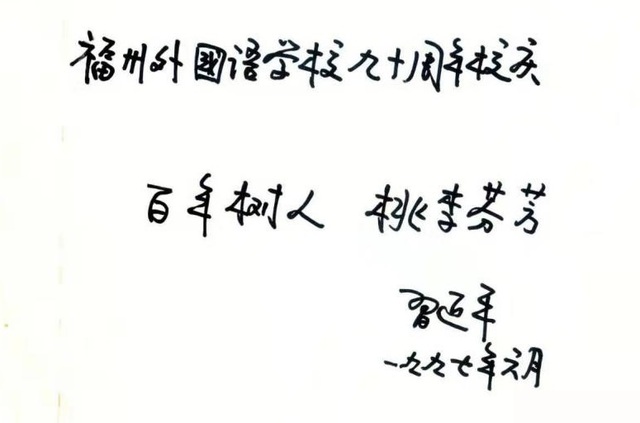 福州外国语学校九十周年校庆
百年树人 桃李芬芳
习近平
一九九七年六月